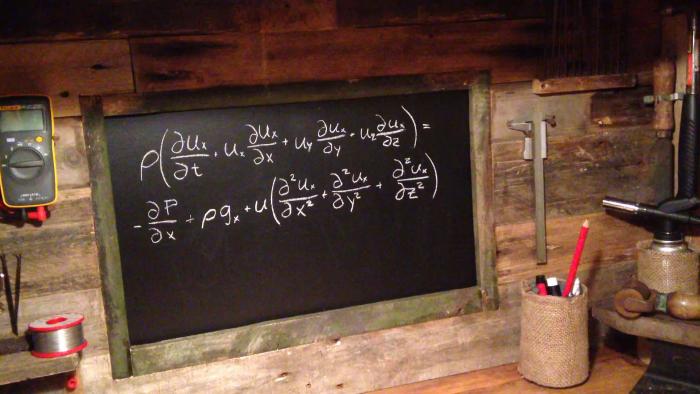 ρ(∂uₓ/∂t + uₓ ∂uₓ/∂x + uᵧ ∂uₓ/∂y + u_z ∂uₓ/∂z) =
-∂P/∂x + ρgₓ + u(∂²uₓ/∂x² + ∂²uₓ/∂y² + ∂²uₓ/∂z²)